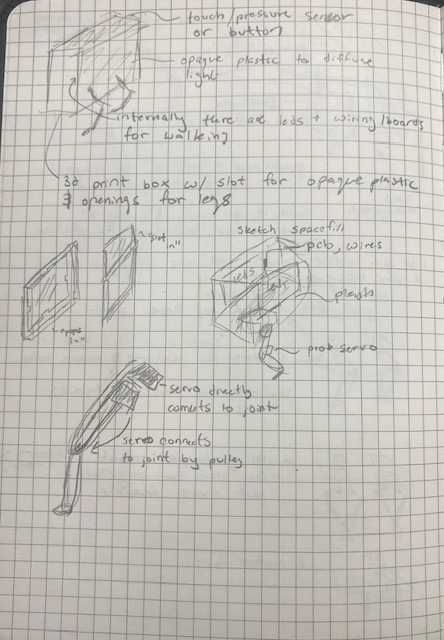 touch/pressure sensor
or button
opaque plastic to diffuse
light
internally there are leds + wiring/boards
for walking
3d print box w/ slot for opaque plastic
& openings for legs
"slot
in"
sketch spacefill
pcb, wires
leds
leds
plastic
in"
prob servo
servo directly
connects to joint
servo connects
to joint by pulley